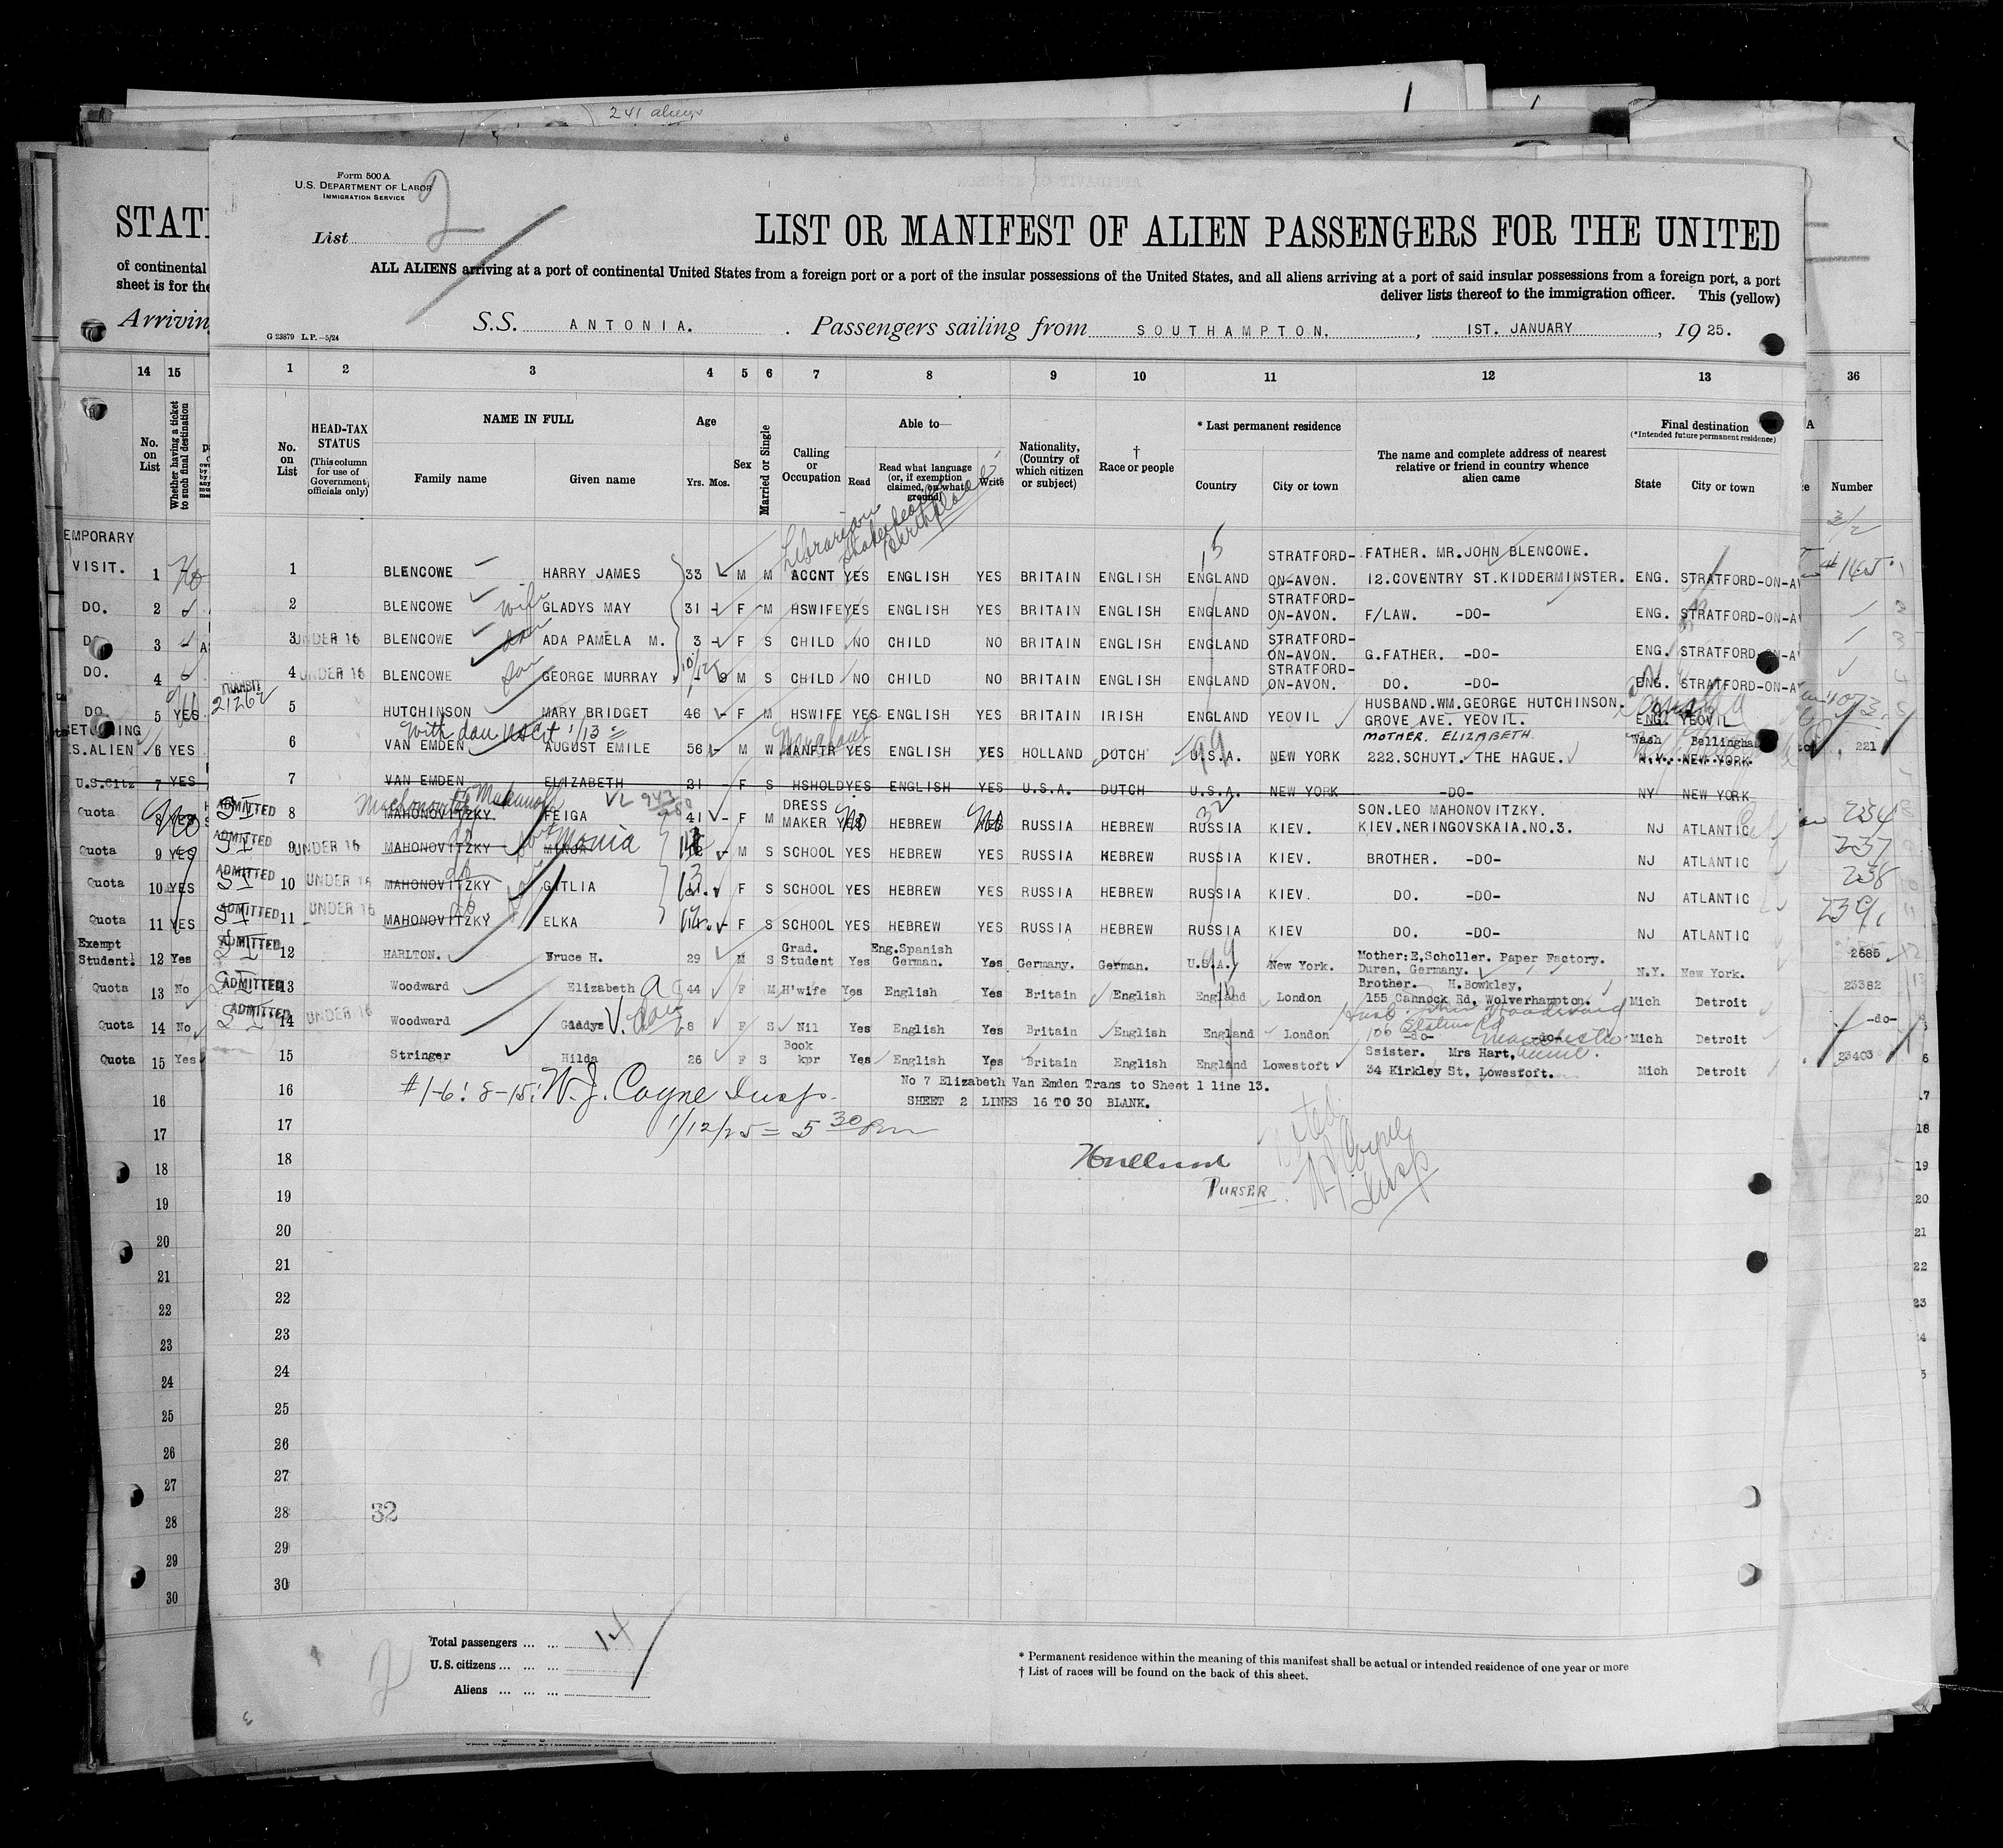 241 aliens
Form 500 A
U.S. DEPARTMENT OF LABOR
IMMIGRATION SERVICE
2
List
LIST OR MANIFEST OF ALIEN PASSENGERS FOR THE UNITED
ALL ALIENS arriving at a port of continental United States from a foreign port or a port of the insular possessions of the United States, and all aliens arriving at a port of said insular possessions from a foreign port, a port
deliver lists thereof to the immigration officer. This (yellow)
S.S. ANTONIA. Passengers sailing from SOUTHAMPTON. , 1ST. JANUARY , 1925.
G 23879 L.P.—5/24
STAT
of continental
sheet is for the
Arrivin
14 15
1 2 3 4 5 6 7 8 9 10 11 12 13
36
No. on List
Whether having a ticket to such final destination
No. on List
HEAD-TAX STATUS
(This column for use of Government officials only)
NAME IN FULL
Family name
Given name
Age
Yrs. Mos.
Sex
Married or Single
Calling or Occupation
Able to—
Read
Read what language (or, if exemption claimed, on what ground)
Write
Nationality, (Country of which citizen or subject)
† Race or people
* Last permanent residence
Country
City or town
The name and complete address of nearest relative or friend in country whence alien came
Final destination
(*Intended future permanent residence)
State
City or town
Number
Librarian Shakespeare Birthplace
EMPORARY VISIT. 1 No
1 BLENCOWE HARRY JAMES 33 M M ACCNT YES ENGLISH YES BRITAIN ENGLISH ENGLAND STRATFORD-ON-AVON. FATHER. MR.JOHN BLENCOWE. 12.COVENTRY ST.KIDDERMINSTER. ENG. STRATFORD-ON-AV
DO. 2
2 BLENCOWE wife GLADYS MAY 31 F M HSWIFE YES ENGLISH YES BRITAIN ENGLISH ENGLAND STRATFORD-ON-AVON. F/LAW. -DO- ENG. STRATFORD-ON-AV
3
3 UNDER 16 BLENCOWE dau ADA PAMELA M. 3 F S CHILD NO CHILD NO BRITAIN ENGLISH ENGLAND STRATFORD-ON-AVON. G.FATHER. -DO- ENG. STRATFORD-ON-A
DO. 4
4 UNDER 16 BLENCOWE son GEORGE MURRAY 9 M S CHILD NO CHILD NO BRITAIN ENGLISH ENGLAND STRATFORD-ON-AVON. DO. -DO- ENG. STRATFORD-ON-AV
DO. 5 YES. TRANSIT
5 HUTCHINSON MARY BRIDGET 46 F M HSWIFE YES ENGLISH YES BRITAIN IRISH ENGLAND YEOVIL HUSBAND.WM.GEORGE HUTCHINSON. GROVE AVE. YEOVIL. ENG. YEOVIL Canada
S.ALIEN 6 YES
With dau USCit 1/13
6 VAN EMDEN AUGUST EMILE 56 M W MANFTR YES ENGLISH YES HOLLAND DUTCH U.S.A. NEW YORK MOTHER. ELIZABETH. 222.SCHUYT. THE HAGUE. Wash Bellingham N.Y. NEW YORK. 221
U.S.Citz 7 YES
7 VAN EMDEN ELIZABETH 21 F S HSHOLD YES ENGLISH YES U.S.A. DUTCH U.S.A. NEW YORK -DO- NY NEW YORK
Quota 8 No ADMITTED
8 MAHONOVITZKY FEIGA 41 F M DRESS MAKER HEBREW RUSSIA HEBREW RUSSIA KIEV. SON.LEO MAHONOVITZKY. KIEV.NERINGOVSKAIA.NO.3. NJ ATLANTIC 234
Quota 9 YES ADMITTED
9 UNDER 16 MAHONOVITZKY Monia M S SCHOOL YES HEBREW YES RUSSIA HEBREW RUSSIA KIEV. BROTHER. -DO- NJ ATLANTIC 237
Quota 10 YES ADMITTED
10 UNDER 16 MAHONOVITZKY GITLIA 13 F S SCHOOL YES HEBREW YES RUSSIA HEBREW RUSSIA KIEV. DO. -DO- NJ ATLANTIC 238
Quota 11 YES ADMITTED
11 UNDER 16 MAHONOVITZKY ELKA F S SCHOOL YES HEBREW YES RUSSIA HEBREW RUSSIA KIEV DO. -DO- NJ ATLANTIC 239
Exempt Student. 12 Yes ADMITTED
12 HARLTON. Bruce H. 29 M S Grad. Student Yes Eng.Spanish German. Yes Germany. German. U.S.A. New York. Mother:E,Scholler. Paper Factory. Duren, Germany. N.Y. New York. 2685
Quota 13 No ADMITTED
13 Woodward Elizabeth A 44 F M H'wife Yes English Yes Britain English England London Brother. H.Bowkley, 155 Cannock Rd, Wolverhampton. Mich Detroit 23382
Quota 14 No ADMITTED
14 UNDER 16 Woodward Gladys V. dau 8 F S Nil Yes English Yes Britain English England London -do- -do- Mich Detroit -do-
Quota 15 Yes
15 Stringer Hilda 26 F S Book kpr Yes English Yes Britain English England Lowestoft Ssister. Mrs Hart, 34 Kirkley St, Lowestoft. Mich Detroit 23403
16 #1-6; 8-15; W.J. Coyne Insp. No 7 Elizabeth Van Emden Trans to Sheet 1 line 13.
SHEET 2 LINES 16 TO 30 BLANK.
17 1/12/25 = 5 30 pm
18
PURSER.
W J Coyne
Insp
19
20
21
22
23
24
25
26
27
28 32
29
30
Total passengers ... ... 14
U.S. citizens ... ... ...
Aliens ... ... ...
2
* Permanent residence within the meaning of this manifest shall be actual or intended residence of one year or more
† List of races will be found on the back of this sheet.